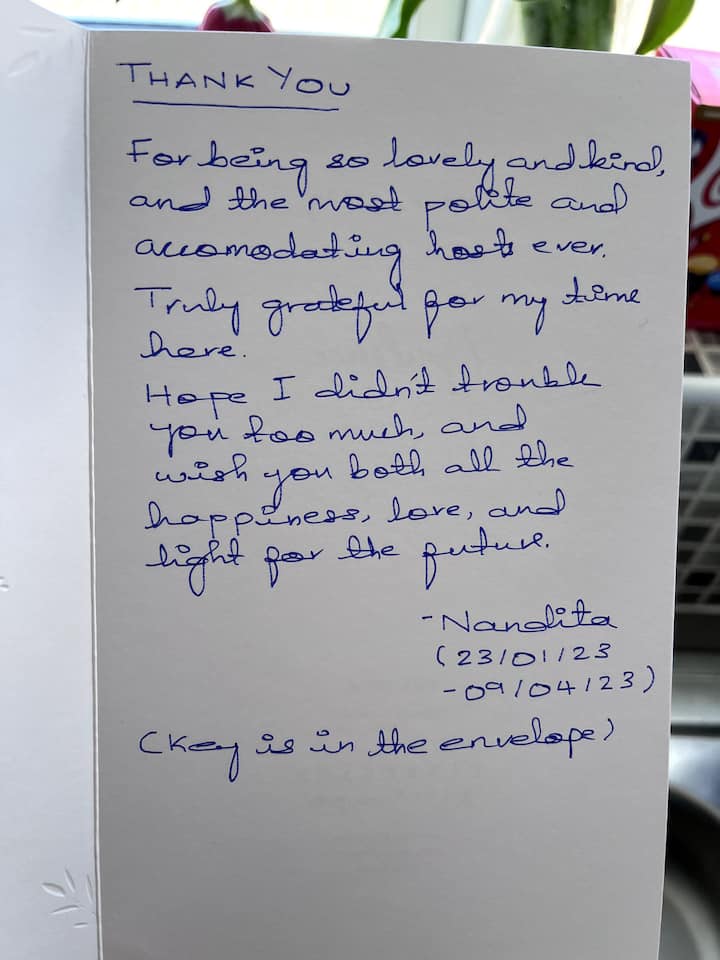 THANK YOU
For being so lovely and kind,
and the most polite and
accomodating hosts ever.
Truly grateful for my time
here.
Hope I didn't trouble
you too much, and
wish you both all the
happiness, love, and
light for the future.
- Nandita
(23/01/23
- 09/04/23)
(Key is in the envelope)